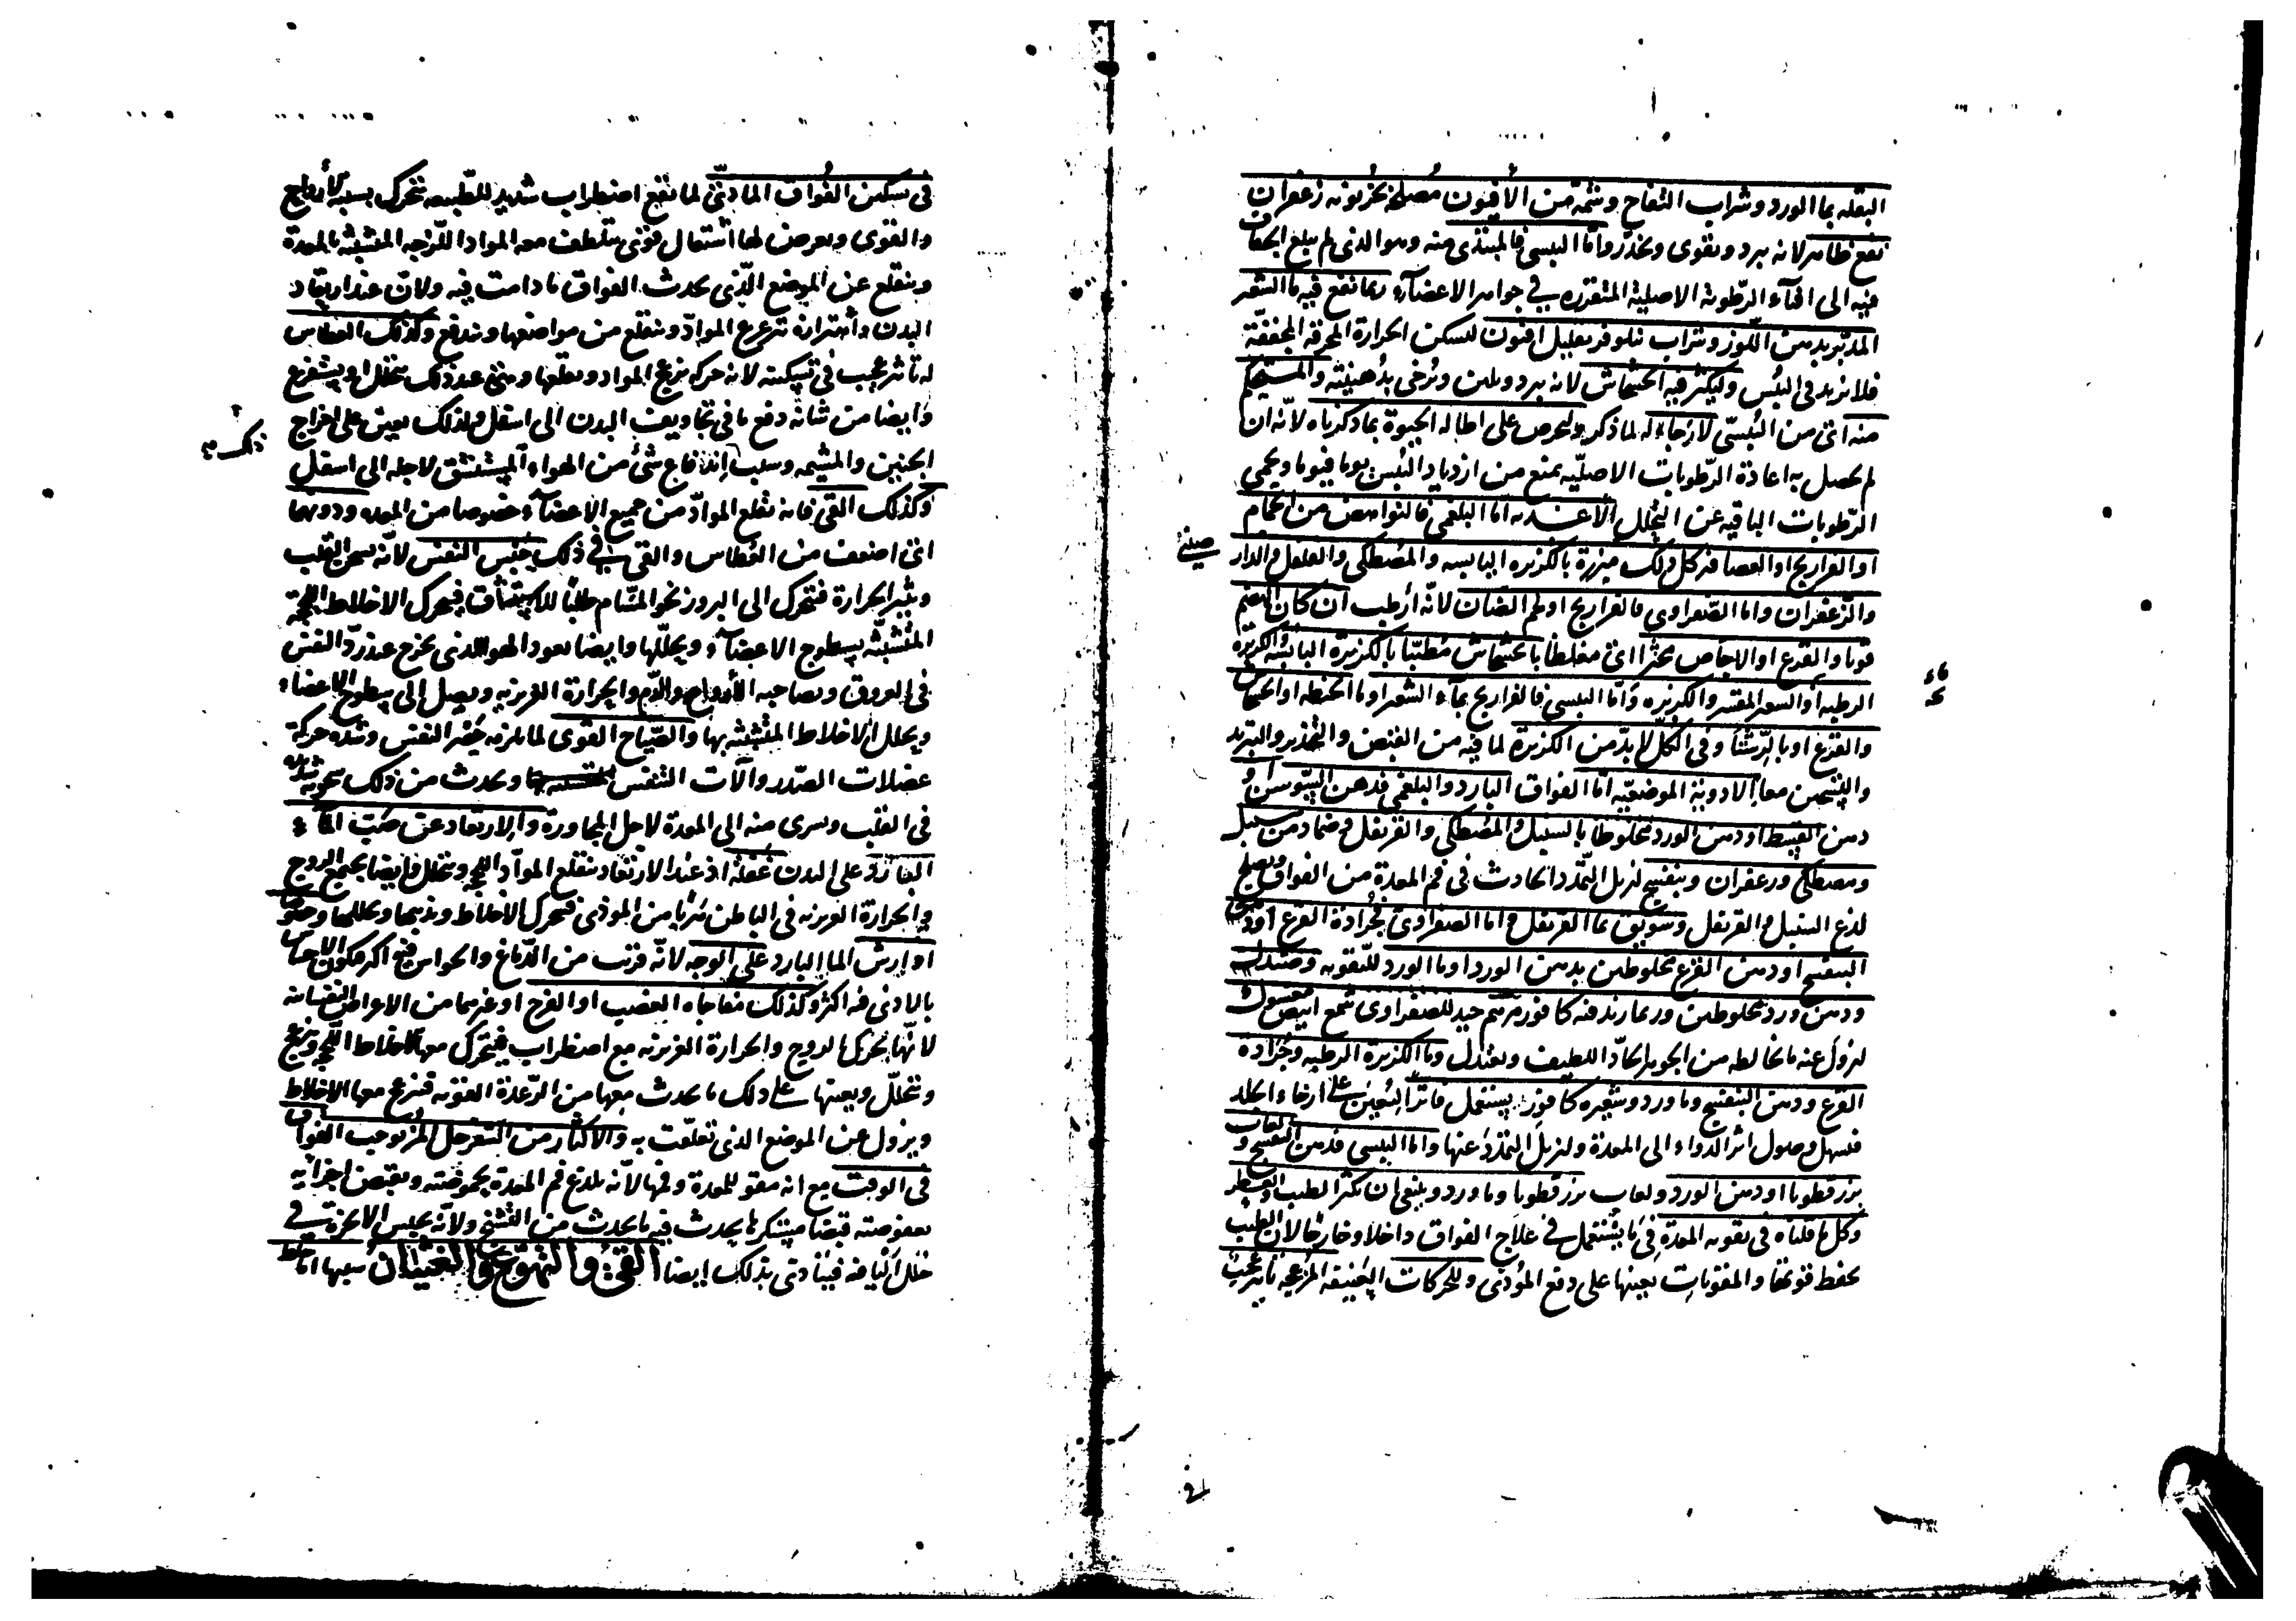 البقله بما الورد وشراب التفاح وشمّة من الأفيون مُصلحة بخربونه زعفران
نفع ظاهر لانه يبرد ويقوى ويخدّر وامّا اليبسى فالمبتذى منه وهو الذى لم يبلغ الجفاف
فيه الى افناء الرّطوبة الاصلية المتقرره في جواهر الاعضاء ربما نفع فيه ماالشعير
المدبّر بدهن اللّوز وشراب نيلوفر بقليل افيون لتسكن الحرارة المحرقة المجففّة
فلا تزيد فى اليُبس وليكثر فيه الخشخاش لانه يبرد ويلين ويُرخى بدُهنيته والمستحكم
منه اى من اليُبسّى لا رجاء له لما ذكر وليحرص على اطاله الحيوة بما ذكرناه لانّه ان
لم يحصل به اعادة الرّطوبات الاصليّه يمنع من ازدياد اليُبس يوما فيوما ويحمى
الرّطوبات الباقيه عن التّحلل الأغذيه امّا البلغمى فالنواهض من الحمام
او الفراريج او العصافير كل ذلك مبزرة بالكزبره اليابسه والمصطكى والفلفل والدار صينى
والزعفران واما الصّفراوى فالفراريج او لحم الضّان لانّه أرطب ان كان الهضم
قويا والقرع او الاجاص مخثرا اى مغلظا بالخشخاش مُطيّبا بالكزبرة اليابسة والكزبره
الرطبه او الشعير المقشر والكزبره وامّا اليبسى فالفراريج بماء الشعير او ماء الحنطه او الحماض
والقرع او بالرّشتا وفى الكلّ لابدّ من الكزبرة لما فيه من القبض والتخدير والتبريد
والتسمين معا الادوية الموضعيّه امّا الفواق البارد والبلغمى فدهن السّوسن أو
دهن القسط او دهن الورد مخلوطا بالسنبل والمصطكى والقرنفل وضماد من سنبل
ومصطكى وزعفران وبنفسج ليزيل التّمدّد الحادث فى فم المعدة من الفواق ويصلح
لذع السنبل والقرنفل وسويق بما القرنفل واما الصفراوى فجُرادة القرع او دهن
البنفسج او دهن القرع مخلوطين بدهن الورد او ما الورد للتقويه وصندل
ودهن ورد مخلوطين وربما زيد فيه كافور مرهم جيد للصفراوى شمع ابيض مغسول
ليزول عنه ما خالطه من الجوهر الحادّ اللطيف وصندل وماالكزبرة الرطبه وجُرادة
القرع ودهن البنفسج وما ورد وشعيره كافور يستعمل فاترًا ليُعين على ارخاء الجلد
فيسهل وصول اثر الدواء الى المعدة وليزيل التمدّد عنها واما اليبسى فدهن البنفسج ولعاب
بزر قطونا او دهن الورد ولعاب بزر قطونا وما ورد وينبغى ان يكثر الطيب والعطر
وكل ما قلناه فى تقويه المعدة فى ما يستعمل في علاج الفواق داخلا وخارجا لان الطيب
يحفظ قوتها والمقويات يعينها على دفع المؤذى وللحركات العنيفه المزعجه تاثير عجيب
فى تسكين الفُواق المادّى لما يقع اضطراب شديد للطّبيعه تتحرك بسببه الأرواح
والقوى ويعرض لها اشتعال قوى يتلطف معه المواد اللّزجه المتشبثه بالمعدة
وينقلع عن الموضع الّذى يحدث الفواق ما دامت فيه ولان عند ارتعاد
البدن واهتزازه تتزعزع الموادّ وتنقلع من مواضعها وتندفع وكذلك العطاس
له تاثير عجيب فى تسكينه لانه حركه تزعج المواد وتقلعها وهى عند ذلك تتحلل او يستفرغ
وايضا من شانه دفع ما فى تجاويف البدن الى اسفل ولذلك يعين على اخراج
الجنين والمشيمه وسبب ذلك اندفاع شئ من الهواء المستنشق لاجله الى اسفل
وكذلك القى فانه يقلع الموادّ من جميع الاعضاء خصوصا من المعده ودونها
اى اضعف من العُطاس والقى في ذلك حبس النفس لانّه يسخن القلب
ويثير الحرارة فتتحرك الى البروز نحو المسّام طلبًا للاستنشاق فيحرك الاخلاط اللّحجة
المتشبّثه بسطوح الاعضاء ويحلّلها وايضا يعود الهواء الذى يخرج عند ردّ النفس
فى العروق ويصاحبه الأرواح والدّم والحرارة الغريزيه ويصل الى سطوح الاعضاء
ويحلل الاخلاط المتشبثه بها والصّياح القوى لما يلزمه حَصْر النفس وشدّه حركة
عضلات الصّدر وآلات التنفس ويحدث من ذلك سخونه شديده
فى القلب ويسرى منه الى المعدة لاجل المجاورة والارتعاد عن صَبّ الماء
البارد على البدن غفلةً اذ عند الارتعاد ينقلع الموادّ اللحجه ويتحلل وايضا يجتمع الروح
والحرارة الغريزيه فى الباطن هَربًا من الموذى فيحرك الاخلاط ويذيبها ويحللها وخصوصا
او ارش الما البارد على الوجه لانّه قريب من الدّماغ والحواس فيه اكثر فيكون الاحساس
بالماذى فيه اكثر وكذلك مفاجاه الغضب او الفزع او غيرهما من الاعراض النفسانيه
لانّها يحرّك الروح والحرارة الغريزيه مع اضطراب فيتحرك معها الاخلاط اللّحجه وتنزعج
وتتحلّل ويعينها على ذلك ما يحدث معها من الرّعدة القويه فتنزعج معها الاخلاط
ويزول عن الموضع الذى تعلّقت به والاكثار من السّفرجل المُز يوجب الفواق
فى الوقت مع انه مقوّ للمعدة وفمها لانّه يلذع فم المعدة بحموضته ويقبض اجزائه
بعفوصته قبضا مستكرها يحدث فيه ما يحدث من التّشنج ولانّه يحبس الابخرة في
خلل اليافه فيتاذى بذلك ايضا القئ والتهوّع والغثيان سببها اما خلط